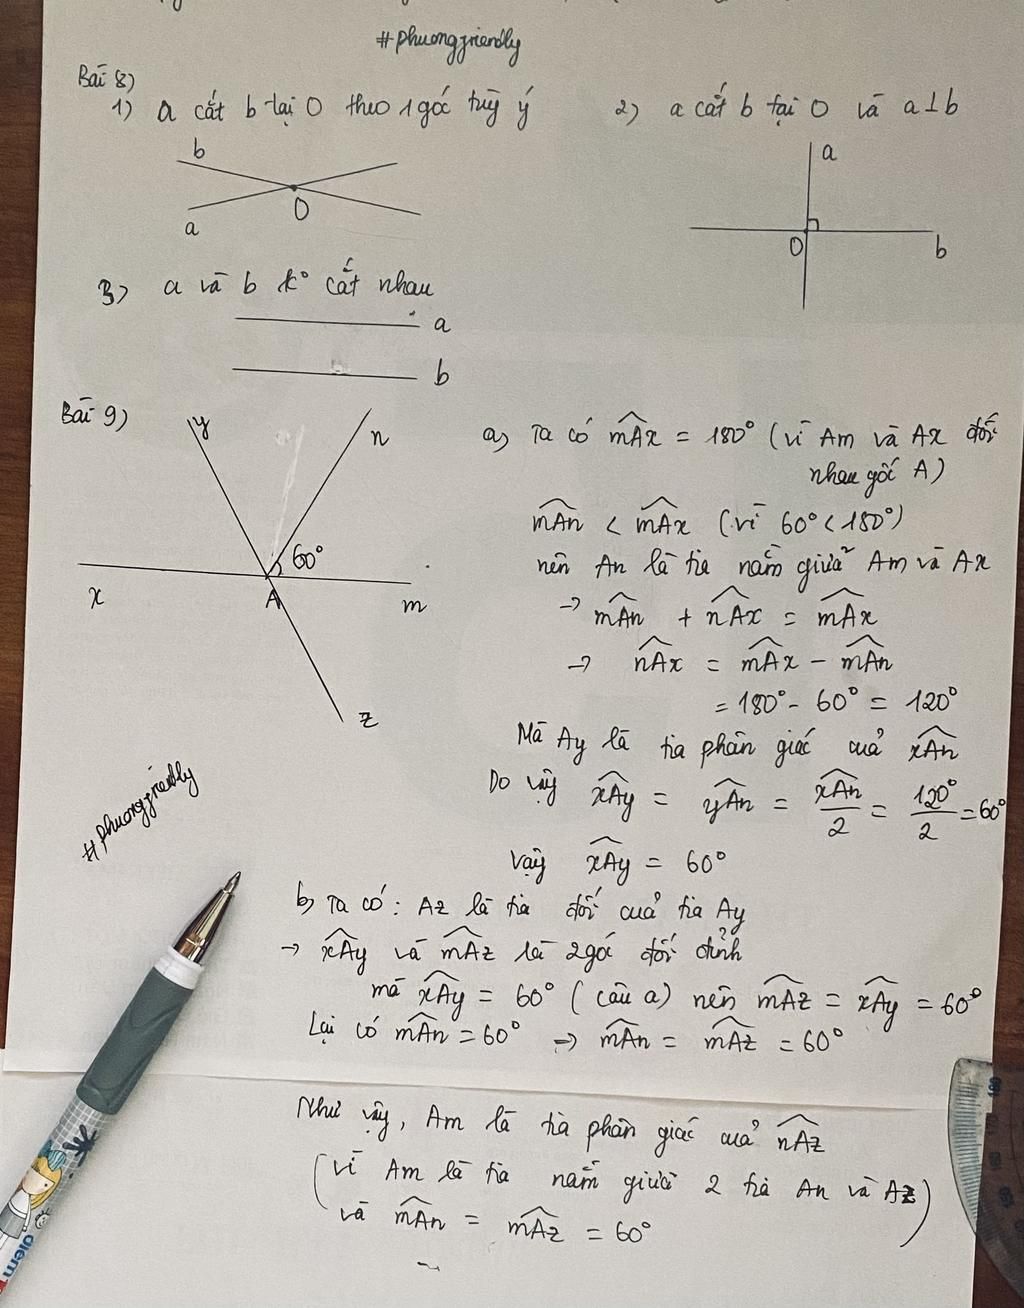 #phuongfriendly
Bài 8)
1) a cắt b tại O theo 1 góc tuỳ ý
2) a cắt b tại O và a⊥b
b
O
a
a
O
b
3) a và b k° cắt nhau
a
b
Bài 9)
y
n
60°
x
A
m
z
a) Ta có m̂Ax = 180° (vì Am và Ax đối
nhau gốc A)
m̂An < m̂Ax (vì 60° < 180°)
nên An là tia nằm giữa Am và Ax
→ m̂An + n̂Ax = m̂Ax
→ n̂Ax = m̂Ax - m̂An
= 180° - 60° = 120°
Mà Ay là tia phân giác của x̂An
Do vậy x̂Ay = ŷAn = x̂An/2 = 120°/2 = 60°
Vậy x̂Ay = 60°
b) Ta có: Az là tia đối của tia Ay
→ x̂Ay và m̂Az là 2 góc đối đỉnh
mà x̂Ay = 60° (câu a) nên m̂Az = x̂Ay = 60°
Lại có m̂An = 60° → m̂An = m̂Az = 60°
#phuongfriendly
Như vậy, Am là tia phân giác của n̂Az
(vì Am là tia nằm giữa 2 tia An và Az
và m̂An = m̂Az = 60°)
điểm